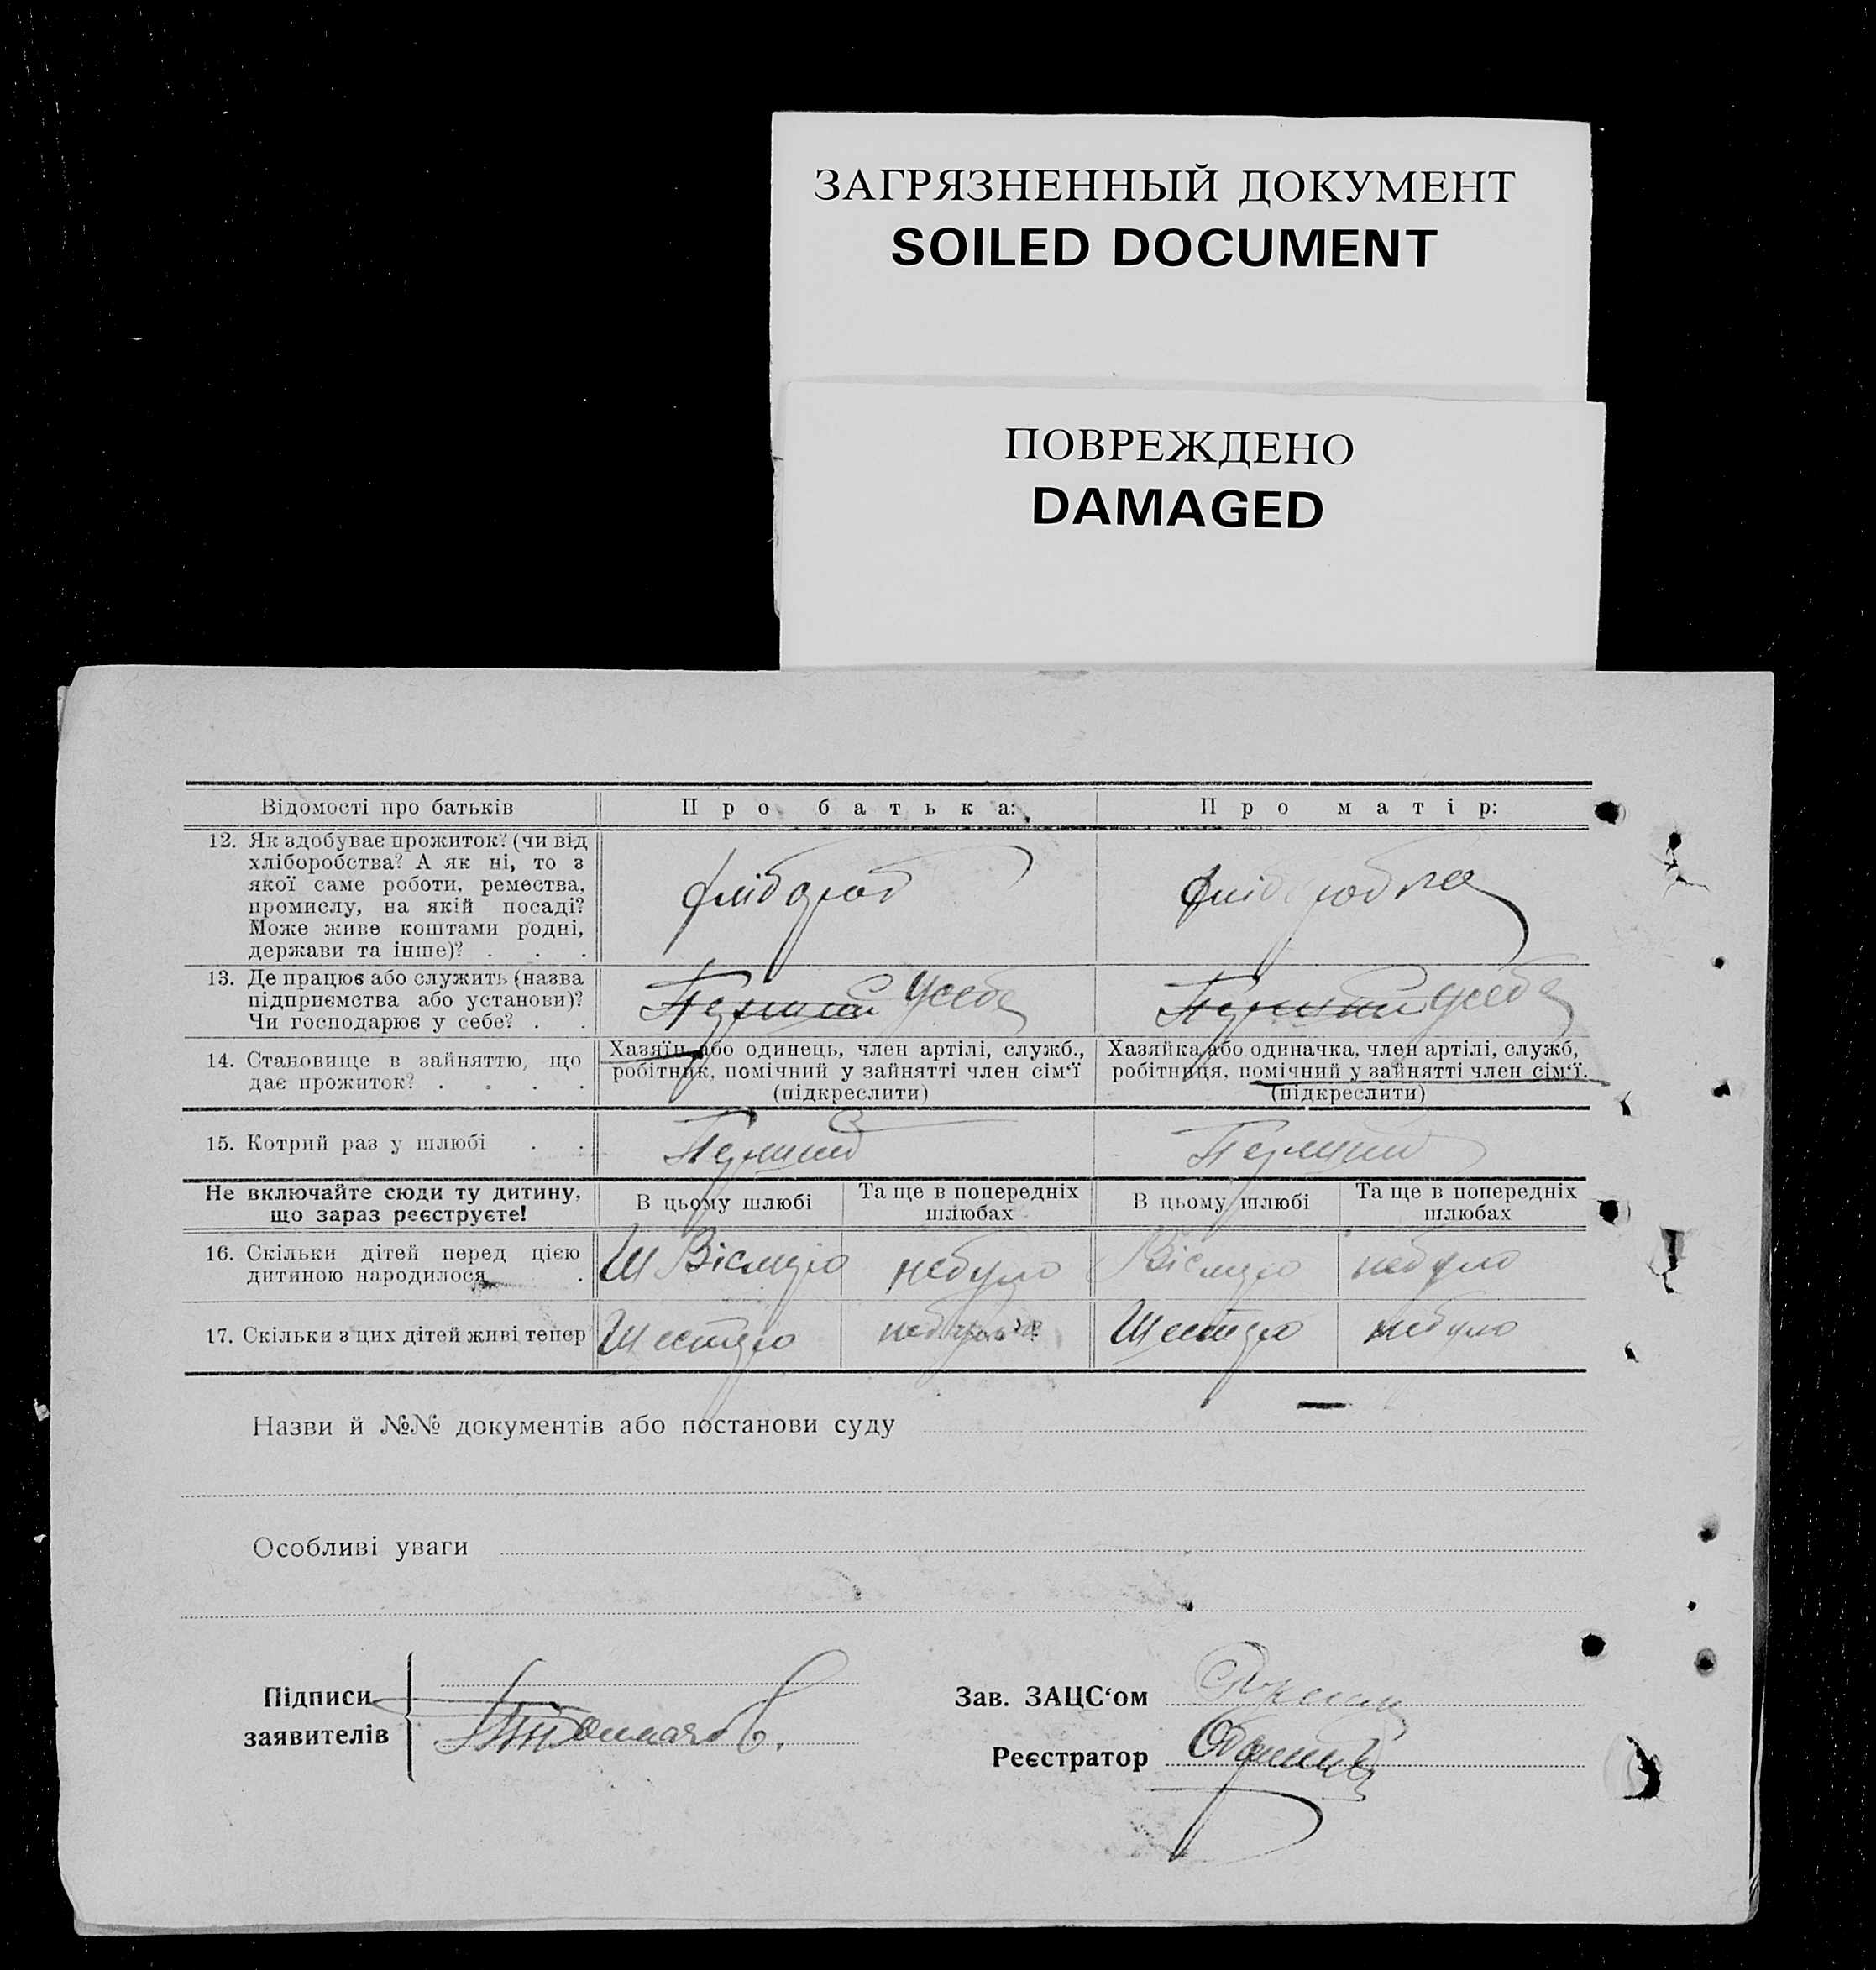 ЗАГРЯЗНЕННЫЙ ДОКУМЕНТ
SOILED DOCUMENT
ПОВРЕЖДЕНО
DAMAGED
Відомості про батьків Про батька: Про матір:
12. Як здобуває прожиток? (чи від
хліборобства? А як ні, то з
якої саме роботи, ремества,
промислу, на якій посаді?
Може живе коштами родні,
держави та інше)? . . .
хлібороб хліборобка
13. Де працює або служить (назва
підприємства або установи)?
Чи господарює у себе? . .
Перший Усебе Перший усебе
14. Становище в зайняттю, що
дає прожиток? . . . .
Хазяїн або одинець, член артілі, служб.,
робітник, помічний у зайнятті член сім‘ї
(підкреслити)
Хазяйка або одиначка, член артілі, служб,
робітниця, помічний у зайнятті член сім‘ї.
(підкреслити)
15. Котрий раз у шлюбі . . Перший Перший
Не включайте сюди ту дитину,
що зараз реєструєте!
В цьому шлюбі Та ще в попередніх
шлюбах
В цьому шлюбі Та ще в попередніх
шлюбах
16. Скільки дітей перед цією
дитиною народилося .
Ш Вісмеро небуло Вісмеро небуло
17. Скільки з цих дітей живі тепер Шестеро небуло Шестеро небуло
Назви й №№ документів або постанови суду
Особливі уваги
Підписи
заявителів
Зав. ЗАЦС‘ом
Реєстратор